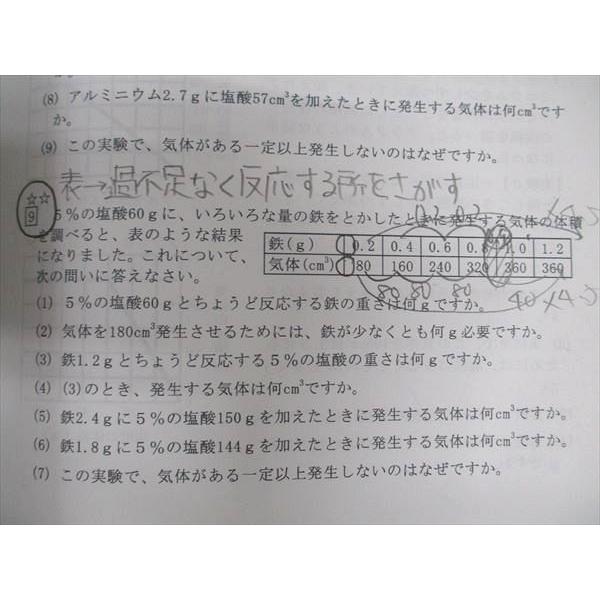 (8) アルミニウム2.7gに塩酸57cm³を加えたときに発生する気体は何cm³です
か。
(9) この実験で、気体がある一定以上発生しないのはなぜですか。
表→過不足なく反応する所をさがす
☆☆
9 5％の塩酸60gに、いろいろな量の鉄をとかしたときに発生する気体の体積
を調べると、表のような結果
になりました。これについて、
次の問いに答えなさい。
鉄(g) 0.2 0.4 0.6 0.8 1.0 1.2
気体(cm³) 80 160 240 320 360 360
80 80 80
(1) 5％の塩酸60gとちょうど反応する鉄の重さは何gですか。
(2) 気体を180cm³発生させるためには、鉄が少なくとも何g必要ですか。
(3) 鉄1.2gとちょうど反応する5％の塩酸の重さは何gですか。
(4) (3)のとき、発生する気体は何cm³ですか。
(5) 鉄2.4gに5％の塩酸150gを加えたときに発生する気体は何cm³ですか。
(6) 鉄1.8gに5％の塩酸144gを加えたときに発生する気体は何cm³ですか。
(7) この実験で、気体がある一定以上発生しないのはなぜですか。